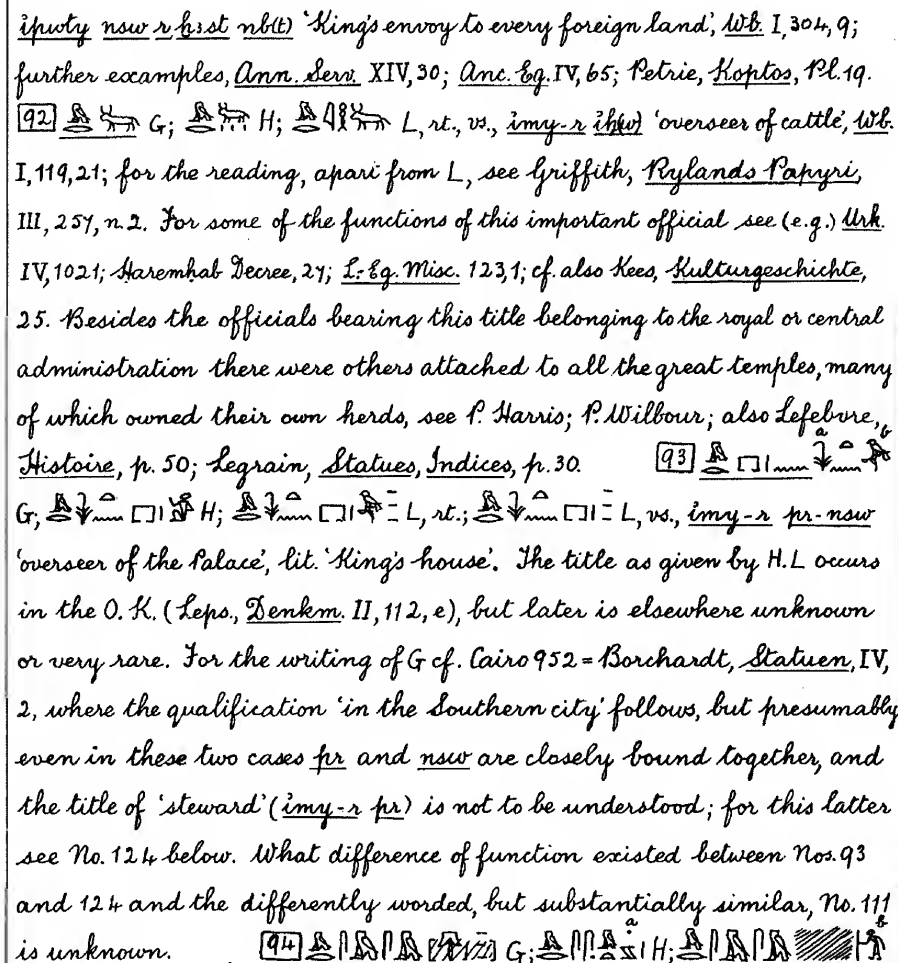 ỉpwty nsw r ḫꜣst nb(t) 'King's envoy to every foreign land', Wb. I, 304, 9;
further examples, Ann. Serv. XIV, 30; Anc. Eg. IV, 65; Petrie, Koptos, Pl. 19.
92 G; H; L, rt., vs., ỉmy-r ỉḥ(w) 'overseer of cattle', Wb.
I, 119, 21; for the reading, apart from L, see Griffith, Rylands Papyri,
III, 257, n. 2. For some of the functions of this important official see (e.g.) Urk.
IV, 1021; Haremhab Decree, 27; L.-Eg. Misc. 123, 1; cf. also Kees, Kulturgeschichte,
25. Besides the officials bearing this title belonging to the royal or central
administration there were others attached to all the great temples, many
of which owned their own herds, see P. Harris; P. Wilbour; also Lefebvre,
Histoire, p. 50; Legrain, Statues, Indices, p. 30. 93 a b
G; H; L, rt.; L, vs., ỉmy-r pr-nsw
'overseer of the Palace', lit. 'King's house'. The title as given by H.L occurs
in the O.K. (Leps., Denkm. II, 112, e), but later is elsewhere unknown
or very rare. For the writing of G cf. Cairo 952 = Borchardt, Statuen, IV,
2, where the qualification 'in the Southern city' follows, but presumably
even in these two cases pr and nsw are closely bound together, and
the title of 'steward' (ỉmy-r pr) is not to be understood; for this latter
see No. 124 below. What difference of function existed between Nos. 93
and 124 and the differently worded, but substantially similar, No. 111
is unknown. 94 G; a H; L b